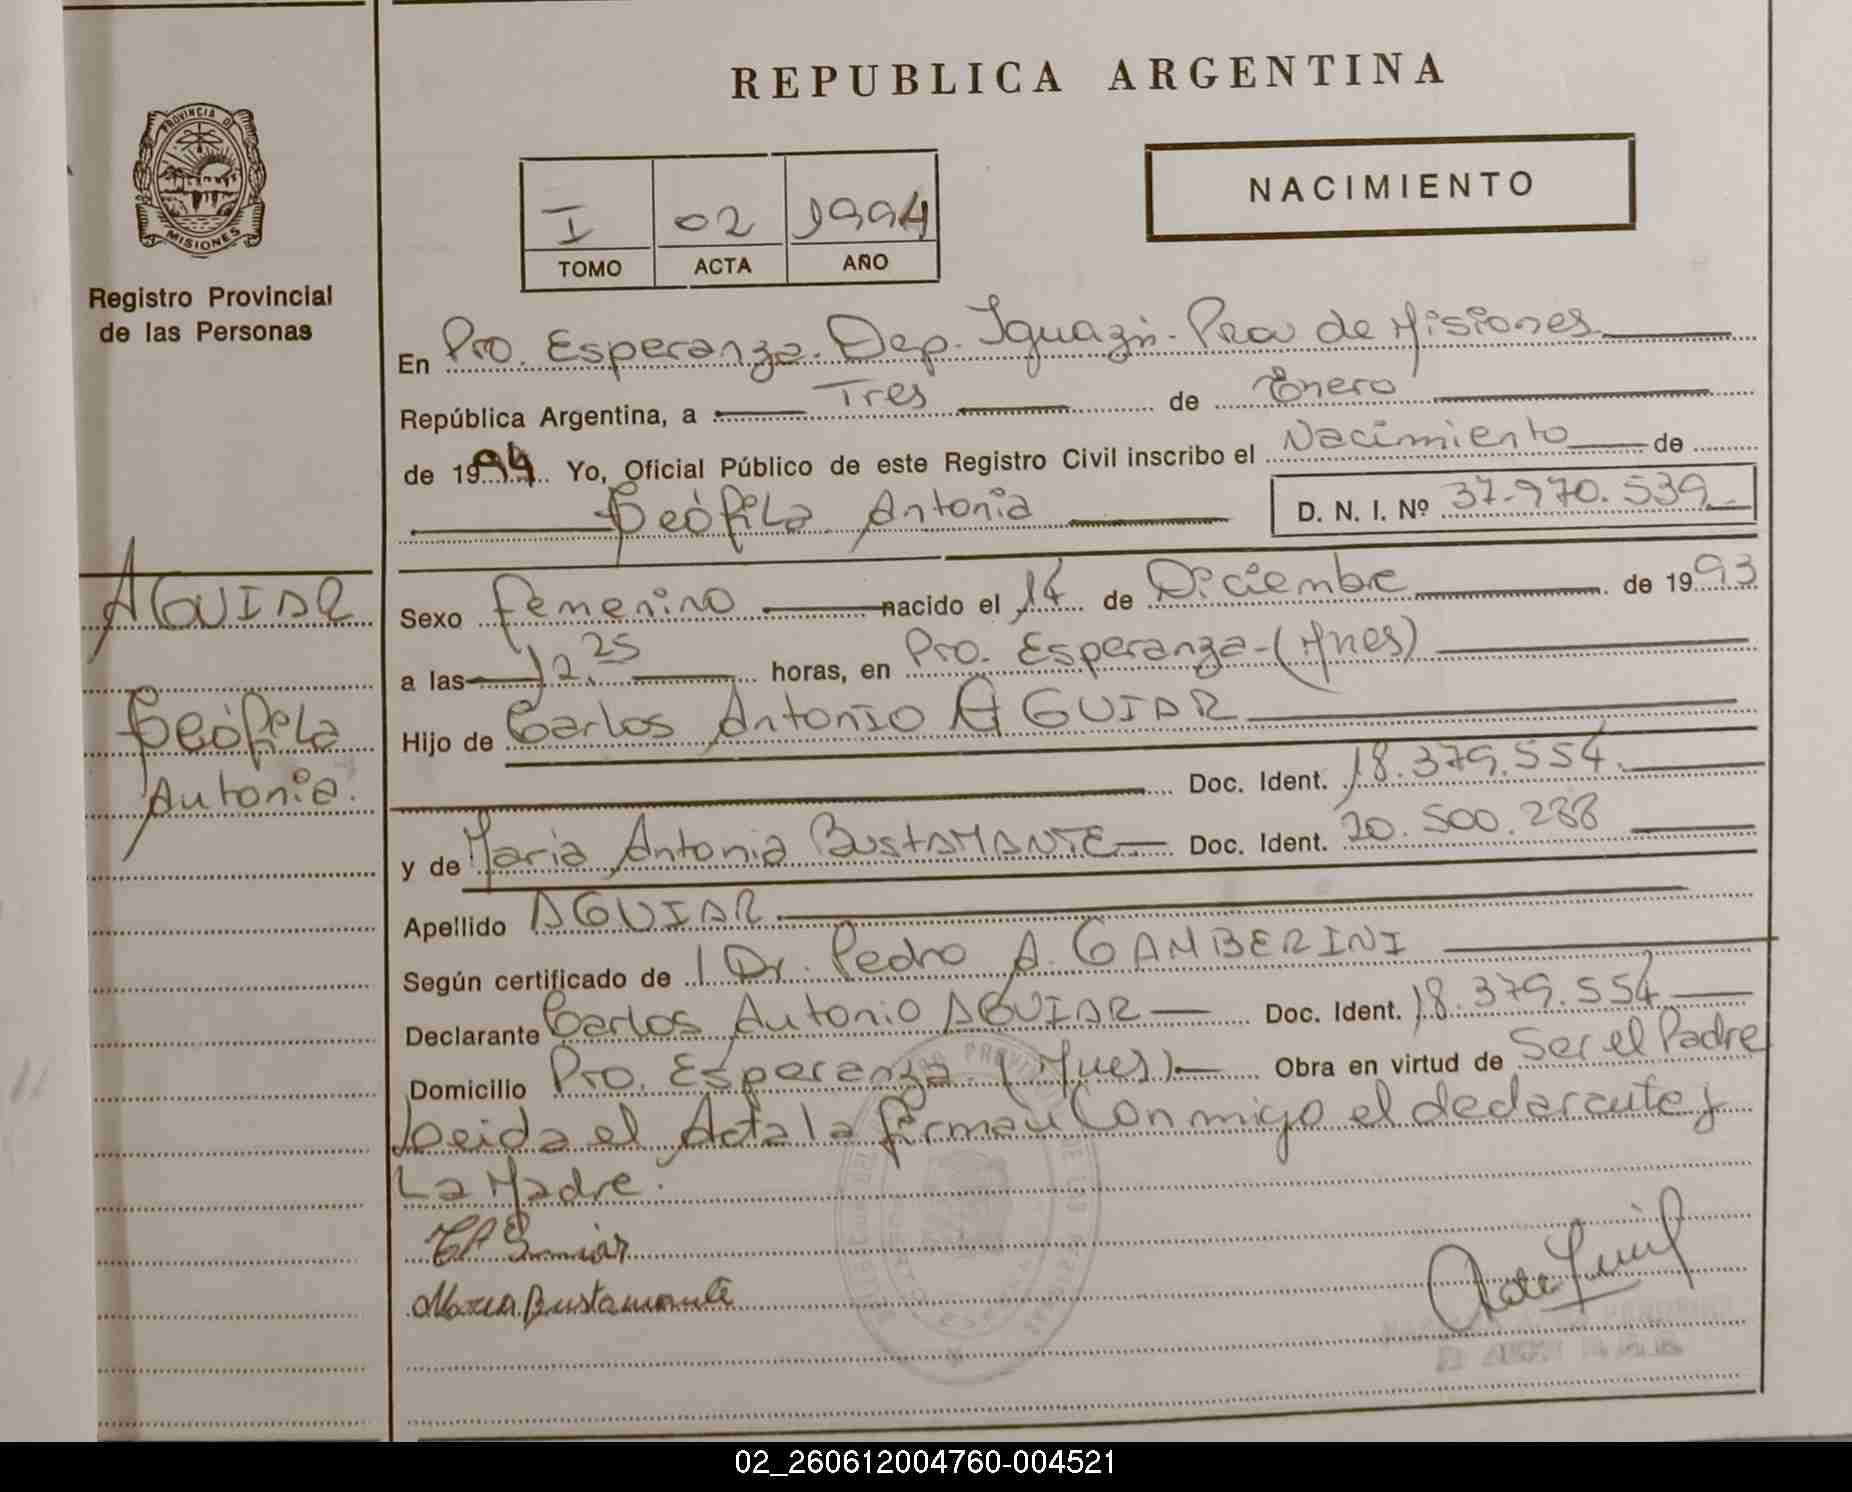 REPUBLICA ARGENTINA
NACIMIENTO
PROVINCIA D
MISIONES
Registro Provincial
de las Personas
I 02 1994
TOMO ACTA AÑO
En Pto. Esperanza. Dep. Iguazú. Pcia de Misiones
República Argentina, a Tres de Enero
de 1994. Yo, Oficial Público de este Registro Civil inscribo el Nacimiento de
Teófila Antonia D. N. I. Nº 37.970.539
AGUIAR
Teófila
Antonia.
Sexo femenino nacido el 14 de Diciembre de 1993
a las 12.25 horas, en Pto. Esperanza-(Mnes)
Hijo de Carlos Antonio AGUIAR
Doc. Ident. 18.379.554.
y de Maria Antonia BUSTAMANTE Doc. Ident. 20.500.288
Apellido AGUIAR
Según certificado de Dr. Pedro A. GAMBERINI
Declarante Carlos Antonio AGUIAR Doc. Ident. 18.379.554
Domicilio Pto. Esperanza. (Mnes) Obra en virtud de Ser el Padre
Leida el Acta la firman Conmigo el declarante y
La Madre.
Maria Bustamante
02_260612004760-004521